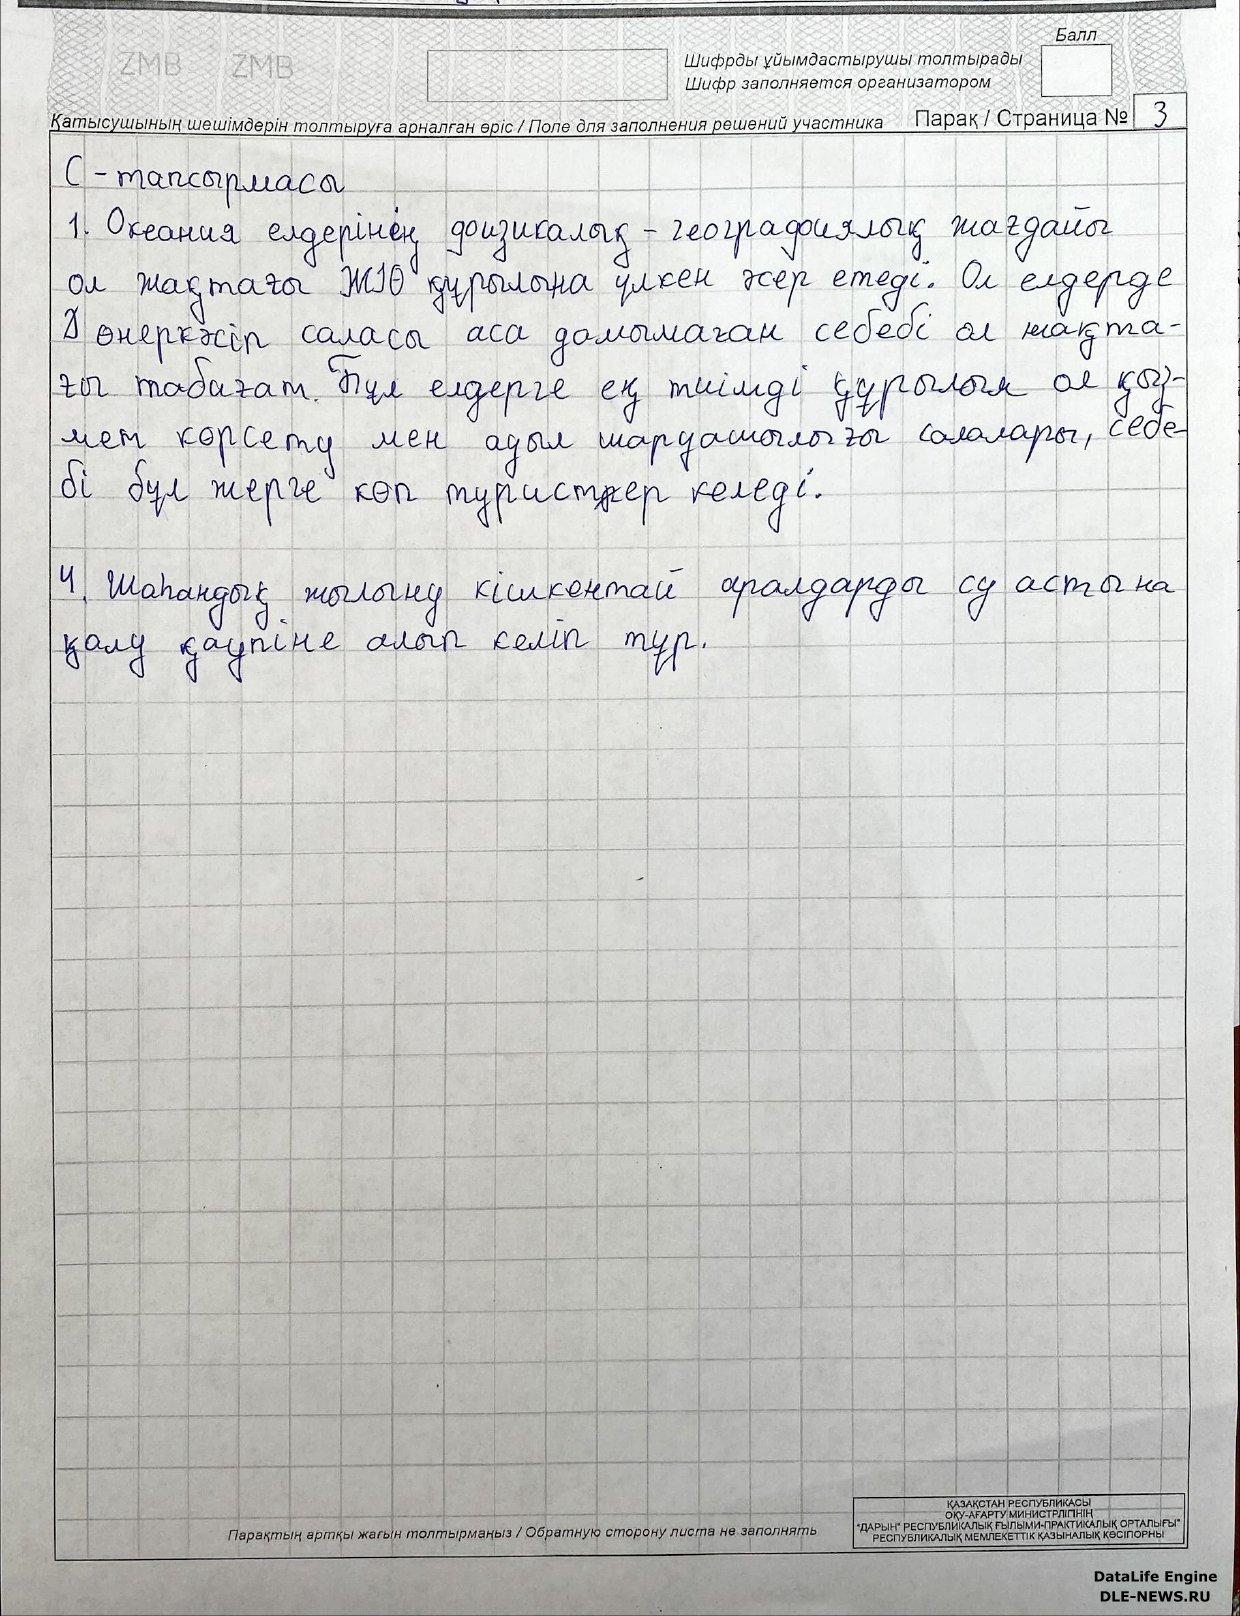 ZMB ZMB
Балл
Шифрды ұйымдастырушы толтырады
Шифр заполняется организатором
Қатысушының шешімдерін толтыруға арналған өріс / Поле для заполнения решений участника Парақ / Страница № 3
С - тапсырмасы
1. Океания елдерінің физикалық - географиялық жағдайы
ол жақтағы ЖІӨ құрылына үлкен әсер етеді. Ол елдерде
өнеркәсіп саласы аса дамымаған себебі ол жақта-
ғы табиғат. Бұл елдерге ең тиімді құрылым ол қыз-
мет көрсету мен ауыл шаруашылығы салалары, себе-
бі бұл жерге көп туристер келеді.
4. Шаһандық жылыну кішкентай аралдарды су астына
қалу қаупіне алып келіп тұр.
Парақтың артқы жағын толтырмаңыз / Обратную сторону листа не заполнять
ҚАЗАҚСТАН РЕСПУБЛИКАСЫ
ОҚУ-АҒАРТУ МИНИСТРЛІГІНІҢ
"ДАРЫН" РЕСПУБЛИКАЛЫҚ ҒЫЛЫМИ-ПРАКТИКАЛЫҚ ОРТАЛЫҒЫ"
РЕСПУБЛИКАЛЫҚ МЕМЛЕКЕТТІК ҚАЗЫНАЛЫҚ КӘСІПОРНЫ
DataLife Engine
DLE-NEWS.RU